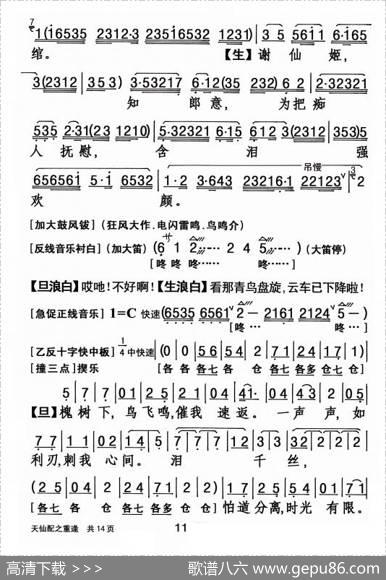 1(16535 2312·3 23516532 1231) | 3 5 5611 6·165
绾。 【生】谢 仙 姬，
3(2312 353) | 3·53217 6·12(35 232) 6 2 | 2·32321
知 郎 意， 为 把 痴
535 2·31(23 1210) | 5·32321 6·15 612 3(2312 | 353)5
人 抚 慰， 含 泪 强
吊慢
656561 5·1 6532 | 1·2 3·643 23216·1 22123 2
欢 颜。
[加大鼓风钹] (狂风大作·电闪雷鸣·鸟鸣介)
[反线音乐衬白] (加大笛) (6 1 2 …… 2 4 5……) (大笛停)
[咚 咚咚…… [咚 咚……]
【旦浪白】哎吔！不好啊！【生浪白】看那青鸟盘旋，云车已下降啦！
[急促正线音乐] 1=C 快速 (6535 6561 2 – 2161 2124 5 –)
[咚… [咚…]
[乙反十字快中板] 1/4 中快速 (0 | 0 | 56 | 54 | 2 | 71 | 24 | 57 | 1)
[撞三点] 揆乐 [各 各七 各 仓 各七 各多 仓七 仓]
5 | 7 | 7 | 01 | 25 | 21 | 04 | 41· | 04 | 43 | 2 | 05
【旦】槐 树 下，鸟 飞 鸣，催 我 速 返。 一 声 声，如
77 | 11 | 02 | 14 | 5 | 7 | 7 | 7 | 2 | 32 | 3 | 3
利 刃，刺 我 心 间。 泪 千 丝，
(25 | 04 | 24 | 57 | 1) | 24 | 21 | 05 | 24 | 01 | 71
各 各七 各多 各七 仓 怕 道 分 离，时 光 有 限。
天仙配之重逢 共14页 11
高清下载 >>> 歌谱八六 www.gepu86.com